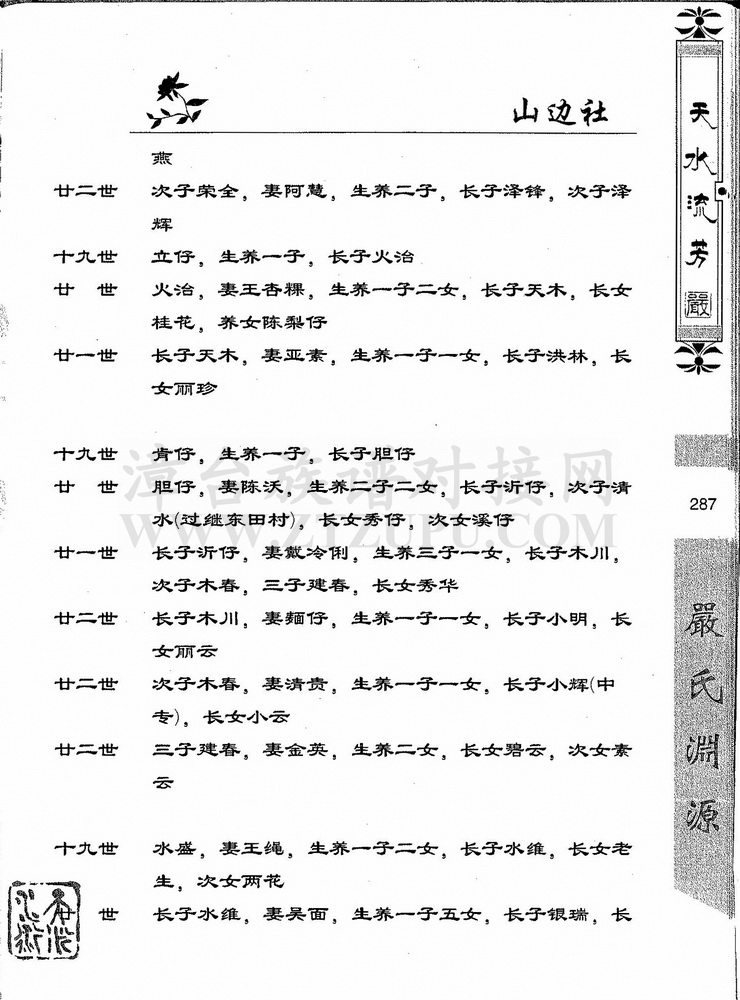 山边社
燕
廿二世 次子荣全，妻阿慧，生养二子，长子泽锋，次子泽
辉
十九世 立仔，生养一子，长子火治
廿 世 火治，妻王杏粿，生养一子二女，长子天木，长女
桂花，养女陈梨仔
廿一世 长子天木，妻亚素，生养一子一女，长子洪林，长
女丽珍
十九世 肯仔，生养一子，长子胆仔
廿 世 胆仔，妻陈沃，生养二子二女，长子沂仔，次子清
水(过继东田村)，长女秀仔，次女溪仔
廿一世 长子沂仔，妻戴冷俐，生养三子一女，长子木川，
次子木春，三子建春，长女秀华
廿二世 长子木川，妻麵仔，生养一子一女，长子小明，长
女丽云
廿二世 次子木春，妻清贵，生养一子一女，长子小辉(中
专)，长女小云
廿二世 三子建春，妻金英，生养二女，长女碧云，次女素
云
十九世 水盛，妻王绳，生养一子二女，长子水维，长女老
生，次女两花
世 长子水维，妻吴面，生养一子五女，长子银瑞，长
天水流芳
嚴
287
嚴氏淵源
漳台族谱对接网
WWW.ZTZUPU.COM